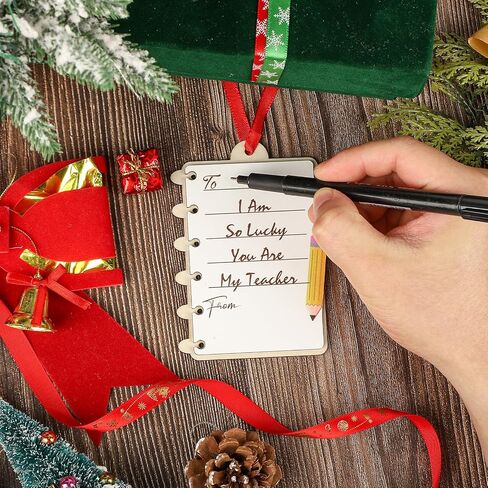 To
I Am
So Lucky
You Are
My Teacher
From